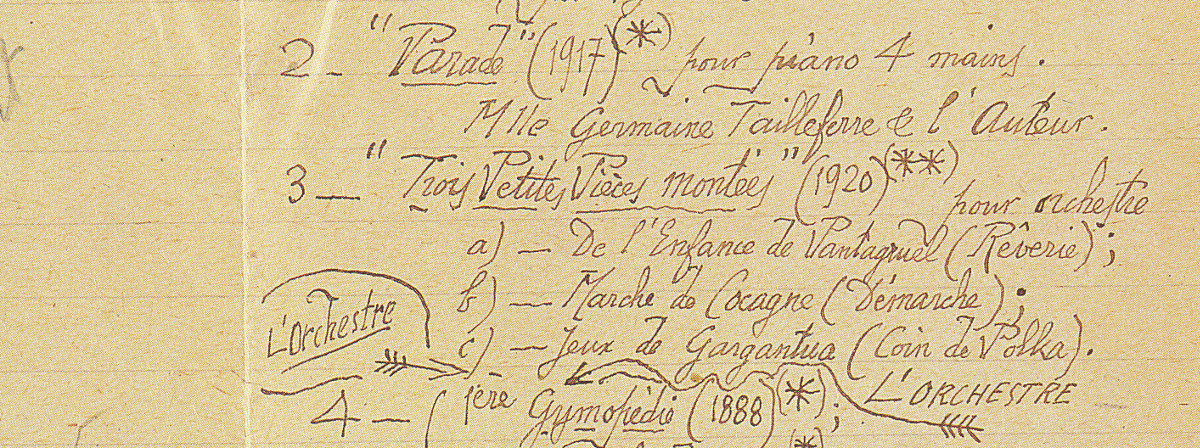 2 - "Parade" (1917) (*) pour piano 4 mains.
Mlle Germaine Tailleferre & l'Auteur.
3 - "Trois Petites Pièces montées" (1920) (**) pour orchestre
a) - De l'Enfance de Pantagruel (Rêverie);
b) - Marche de Cocagne (Démarche);
L'Orchestre
c) - Jeux de Gargantua (Coin de Polka).
L'ORCHESTRE
4 - (1ère Gymopédie (1888) (*);
(*)